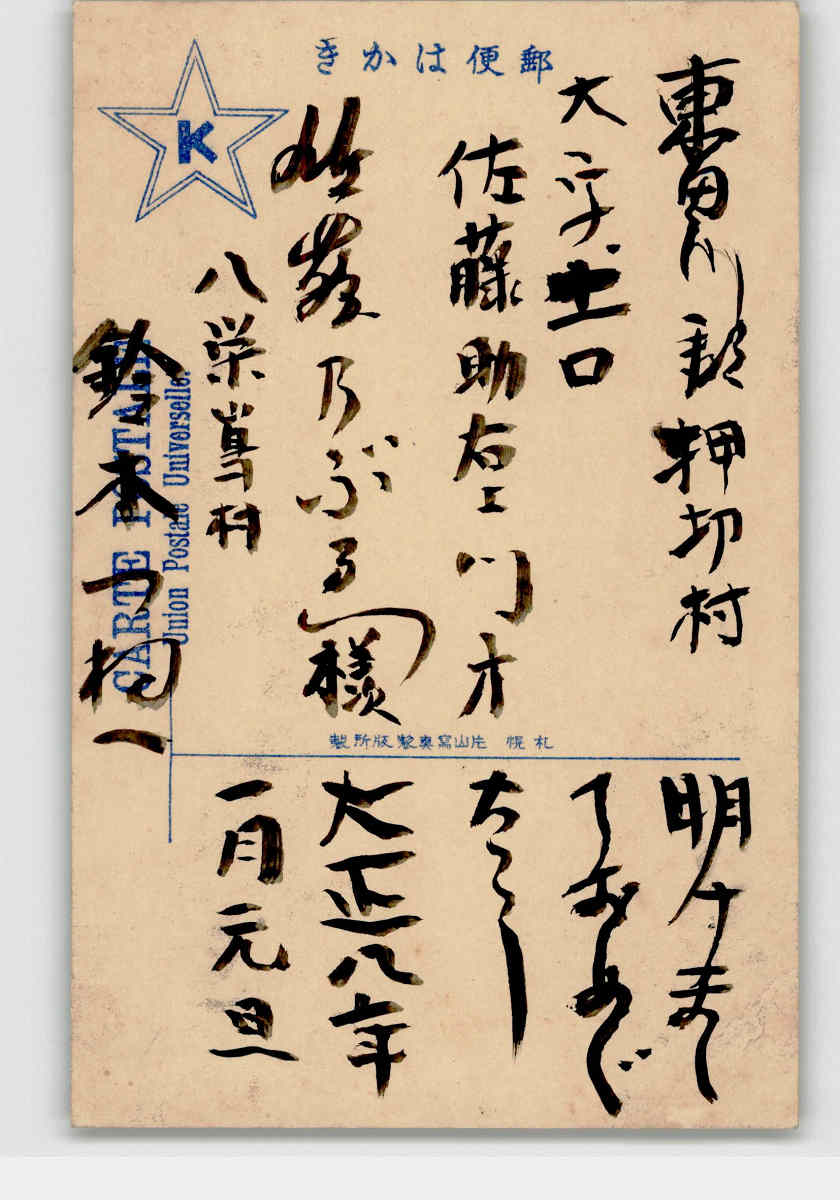 郵便はかき
K
東田川郡押切村
大字土口
佐藤助右エ門方
佐藤乃ぶる様
八栄島村
鈴木
CARTE POSTALE
Union Postale Universelle.
札幌 片山寫真製版所製
明けまし
ておめで
たう
大正八年
一月元旦